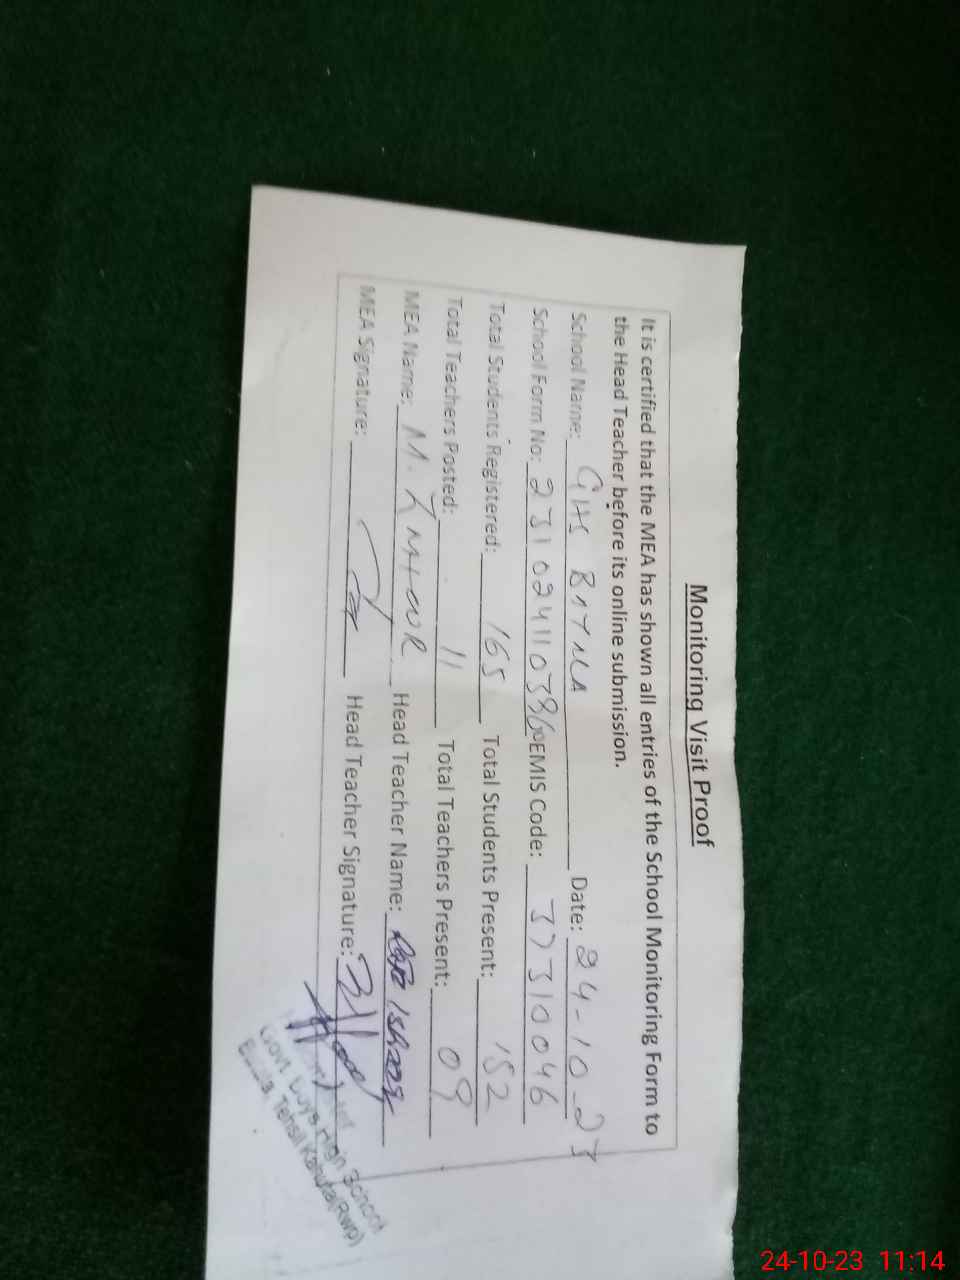 Monitoring Visit Proof
It is certified that the MEA has shown all entries of the School Monitoring Form to
the Head Teacher before its online submission.
School Name: GHS Date: 24-10-23
School Form No: 231024110396 EMIS Code: 37310046
Total Students Registered: 165 Total Students Present: 152
Total Teachers Posted: 11 Total Teachers Present: 09
MEA Name: M. Head Teacher Name: Ishaq
MEA Signature: Head Teacher Signature:
Govt Boys High School
Tehsil Kahuta (Rwp)
24-10-23 11:14